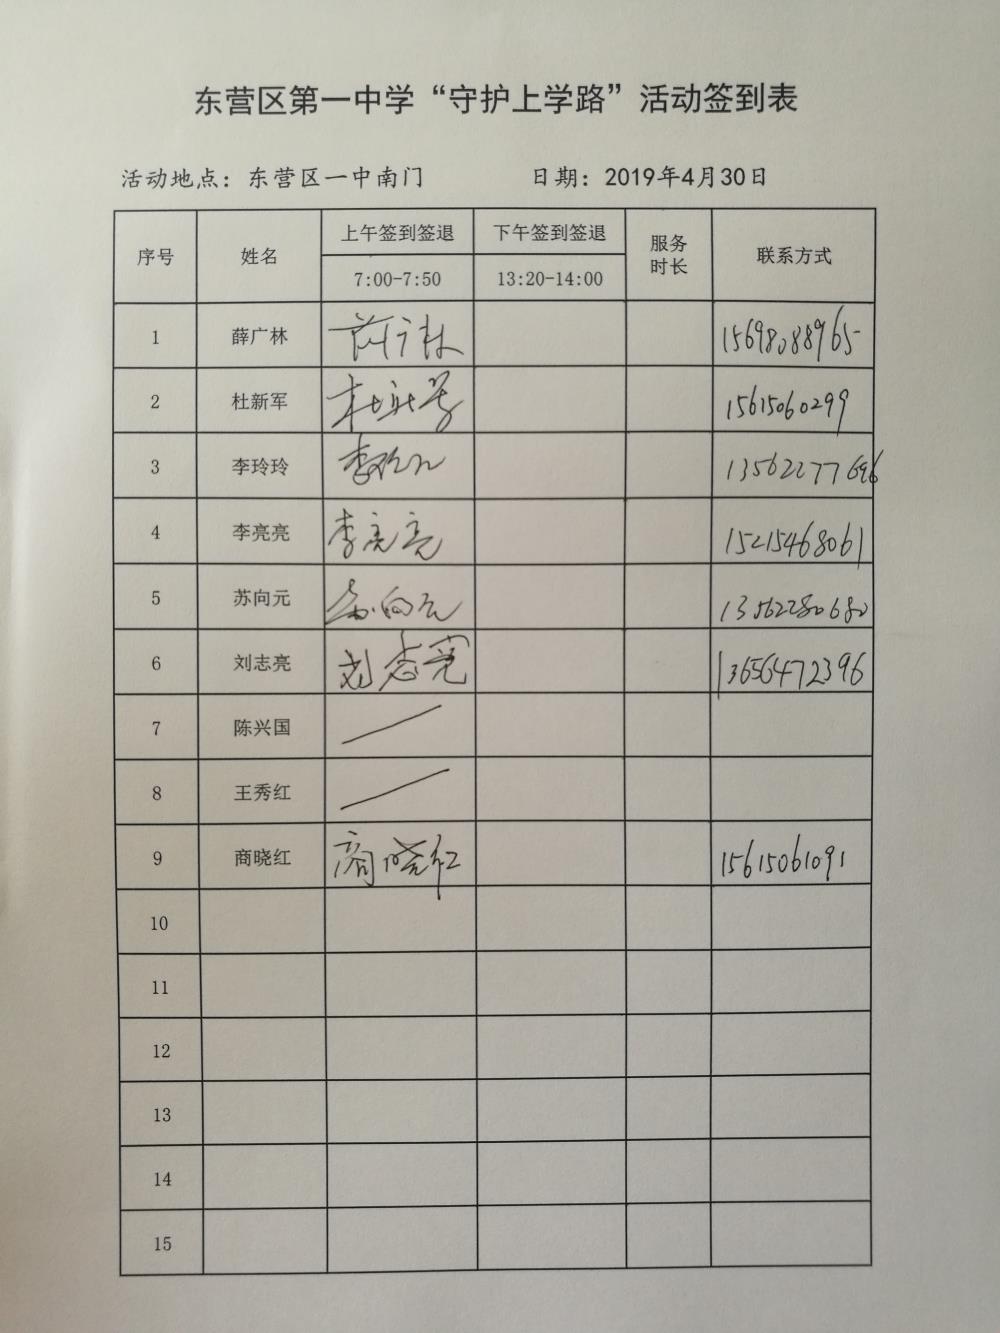 东营区第一中学“守护上学路”活动签到表
活动地点：东营区一中南门 日期：2019年4月30日
序号 姓名 上午签到签退 下午签到签退 服务时长 联系方式
7:00-7:50 13:20-14:00
1 薛广林 薛广林 15698088965
2 杜新军 杜新军 15615060299
3 李玲玲 李玲玲 13562277696
4 李亮亮 李亮亮 15215468061
5 苏向元 苏向元 13562280680
6 刘志亮 刘志亮 13656472396
7 陈兴国
8 王秀红
9 商晓红 商晓红 15615061091
10
11
12
13
14
15